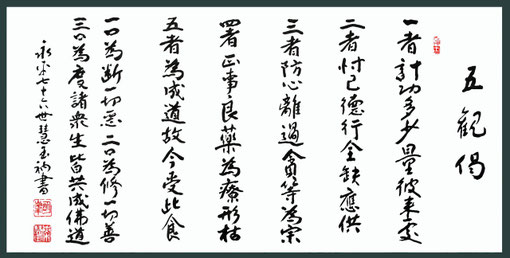 五觀偈
一者計功多少量彼来處
二者忖己德行全缺應供
三者防心離過貪等為宗
四者正事良藥為療形枯
五者為成道故今受此食
一口為断一切悪二口為修一切善
三口為度諸衆生皆共成佛道
永平七十六世慧玉衲書